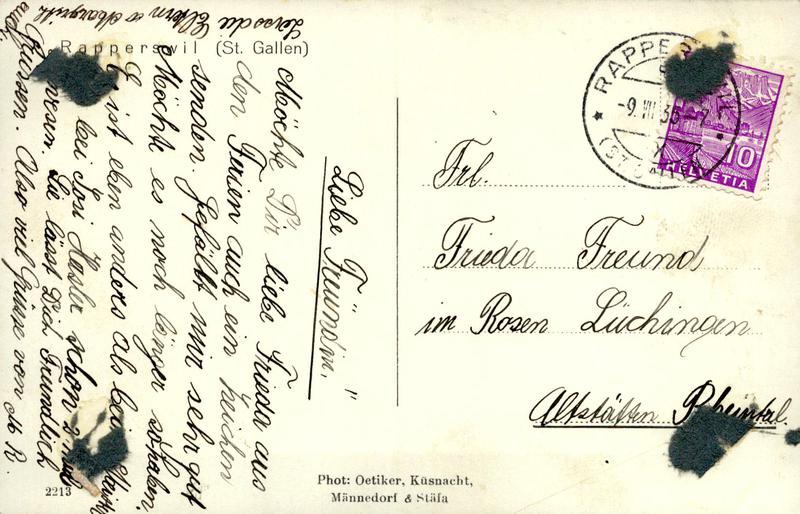 Rapperswil (St. Gallen)
Liebe Freundin!
Möchte Dir liebe Frieda aus
den Ferien auch ein Zeichen
senden. Gefällt mir sehr gut
Möchte es noch länger so haben.
Es ist eben anders als bei
bei Hasler schon 2 mal
Sie lässt Dich Freundlich
Grüssen. Also viel Grüsse von M R.
auch
die Eltern
Frl.
Frieda Freund
im Rosen Lüchingen
Altstätten Rheintal.
RAPPERSWIL
-9. VII 36 - 7
(ST. GALLEN)
10
HELVETIA
Phot: Oetiker, Küsnacht,
Männedorf & Stäfa
2213